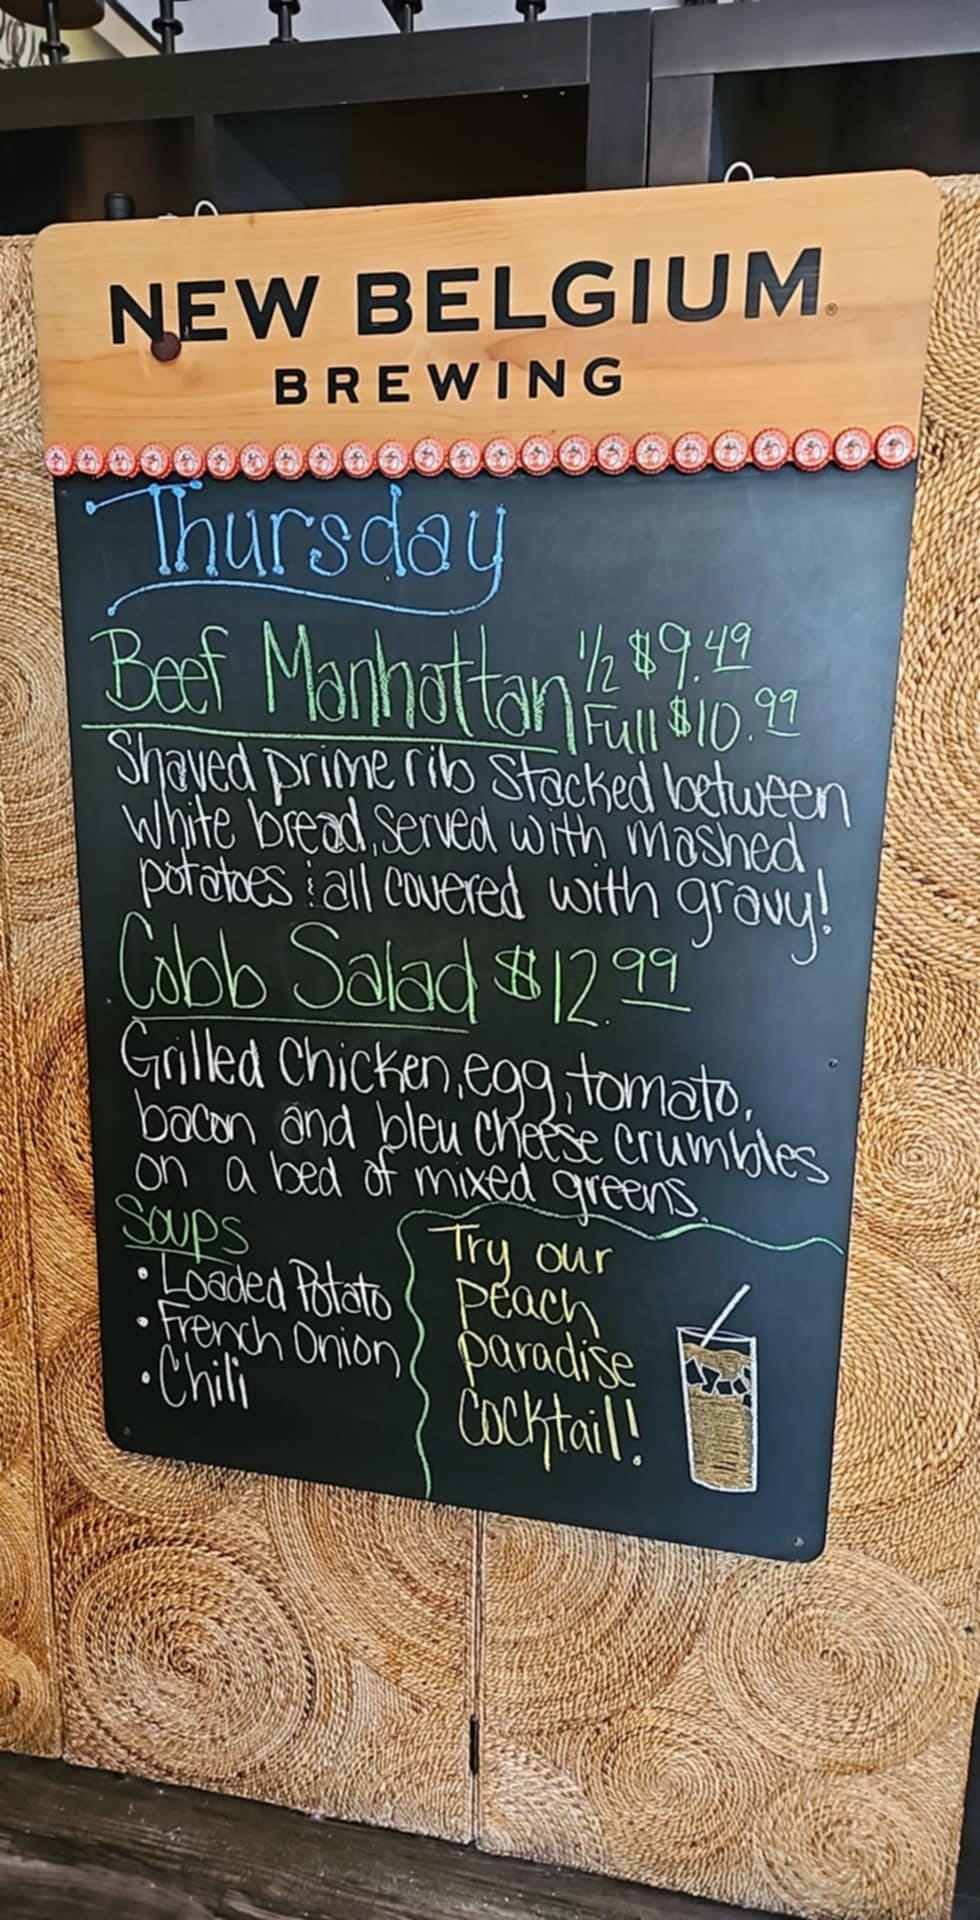 NEW BELGIUM®
BREWING
Thursday
Beef Manhattan 1/2 $9.49
Full $10.99
Shaved prime rib stacked between
white bread, served with mashed
potatoes & all covered with gravy!
Cobb Salad $12.99
Grilled Chicken, egg, tomato,
bacon and bleu cheese crumbles
on a bed of mixed greens.
Soups
• Loaded Potato
• French Onion
• Chili
Try our
peach
paradise
cocktail!